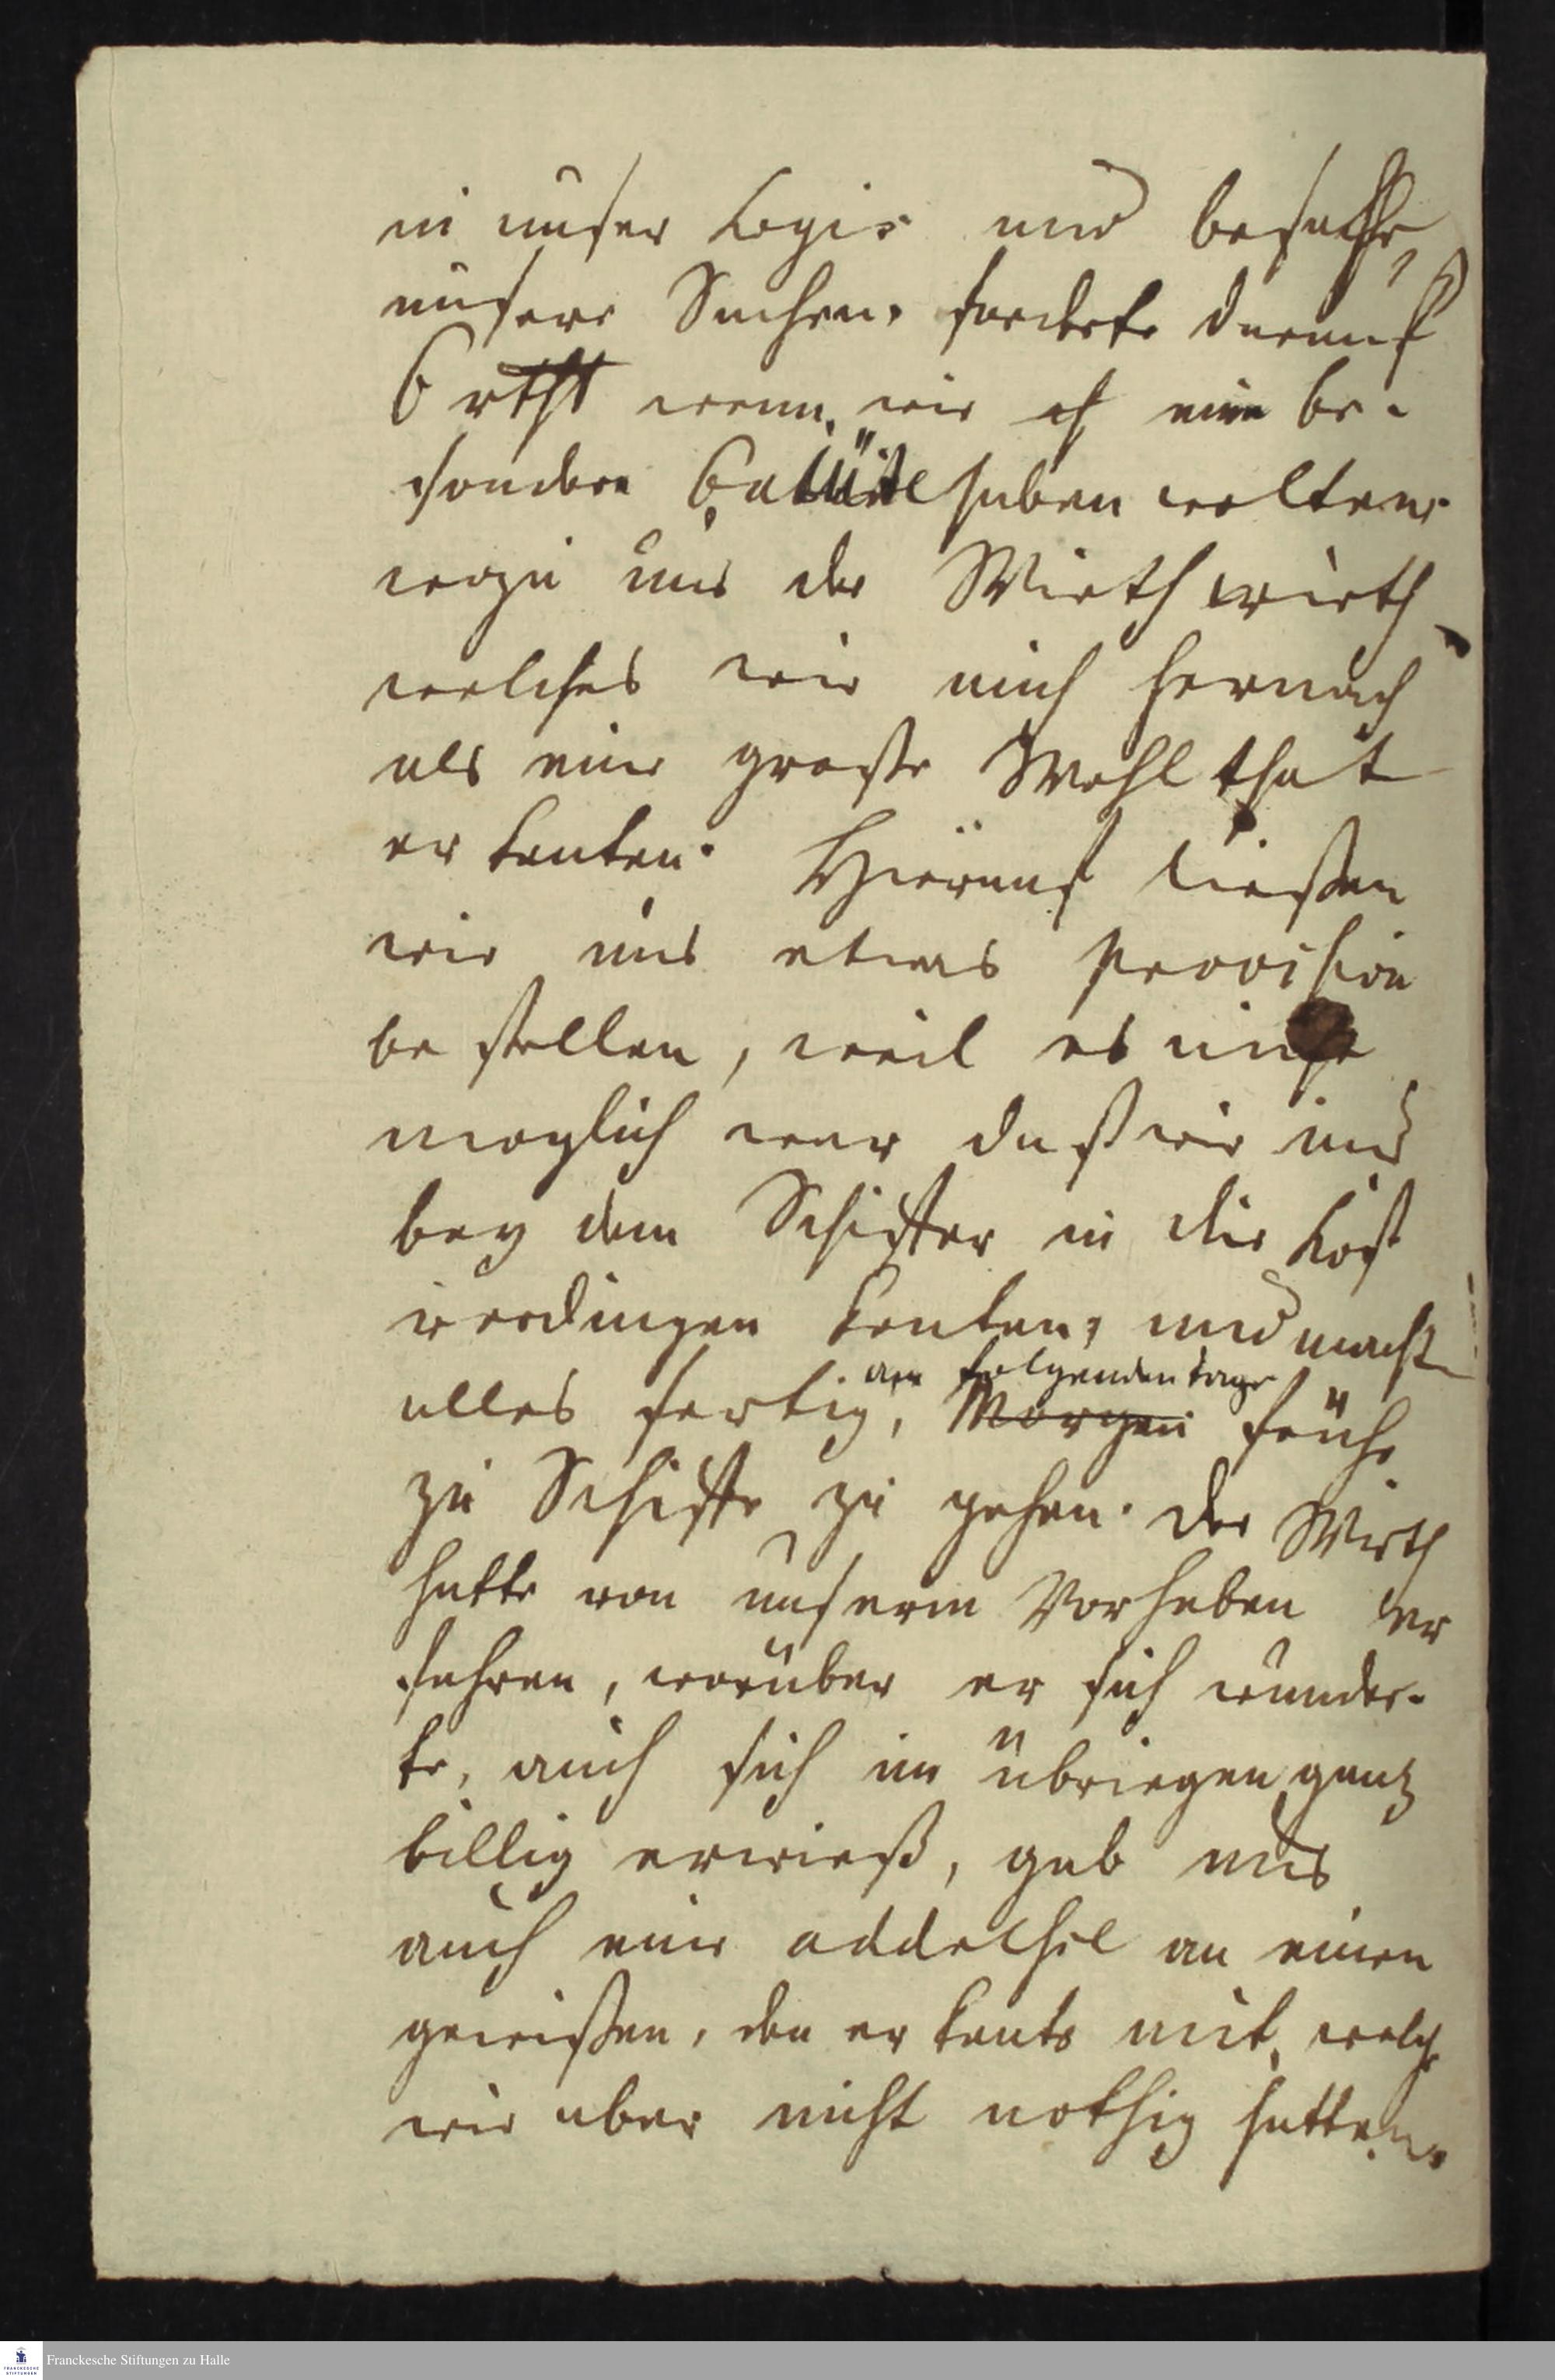 in unser Logis und besahe
unsere Sachen, forderte darauf
6 rthl wenn wir ch eine be-
sondere Cajüte haben wolten,
wozu uns der Wirth wieth
welches wir auch hernach
als eine große Wohlthat
erkenten. Hierauf ließen
wir uns etwas provision
bestellen, weil es nicht
moglich war daß wir uns
bey dem Schiffer in die Kost
verdingen konten, und macht
alles fertig, am folgenden tage
Morgen frühe
zu Schiffe zu gehen. der Wirth
hatte von unserm Vorhaben er
fahren, worüber er sich wunder-
te, auch sich im übriegen gantz
billig erwieß, gab uns
auch eine addresse an einen
gewißen, den er kente mit, welch
wir aber nicht nothig hatten.
Franckesche Stiftungen zu Halle